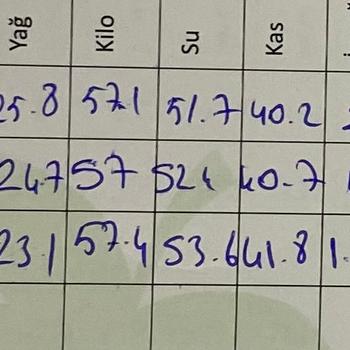 Yağ Kilo Su Kas
25.8 57.1 51.7 40.2
24.7 57 52.1 40.7
23.1 57.4 53.6 41.8 1.